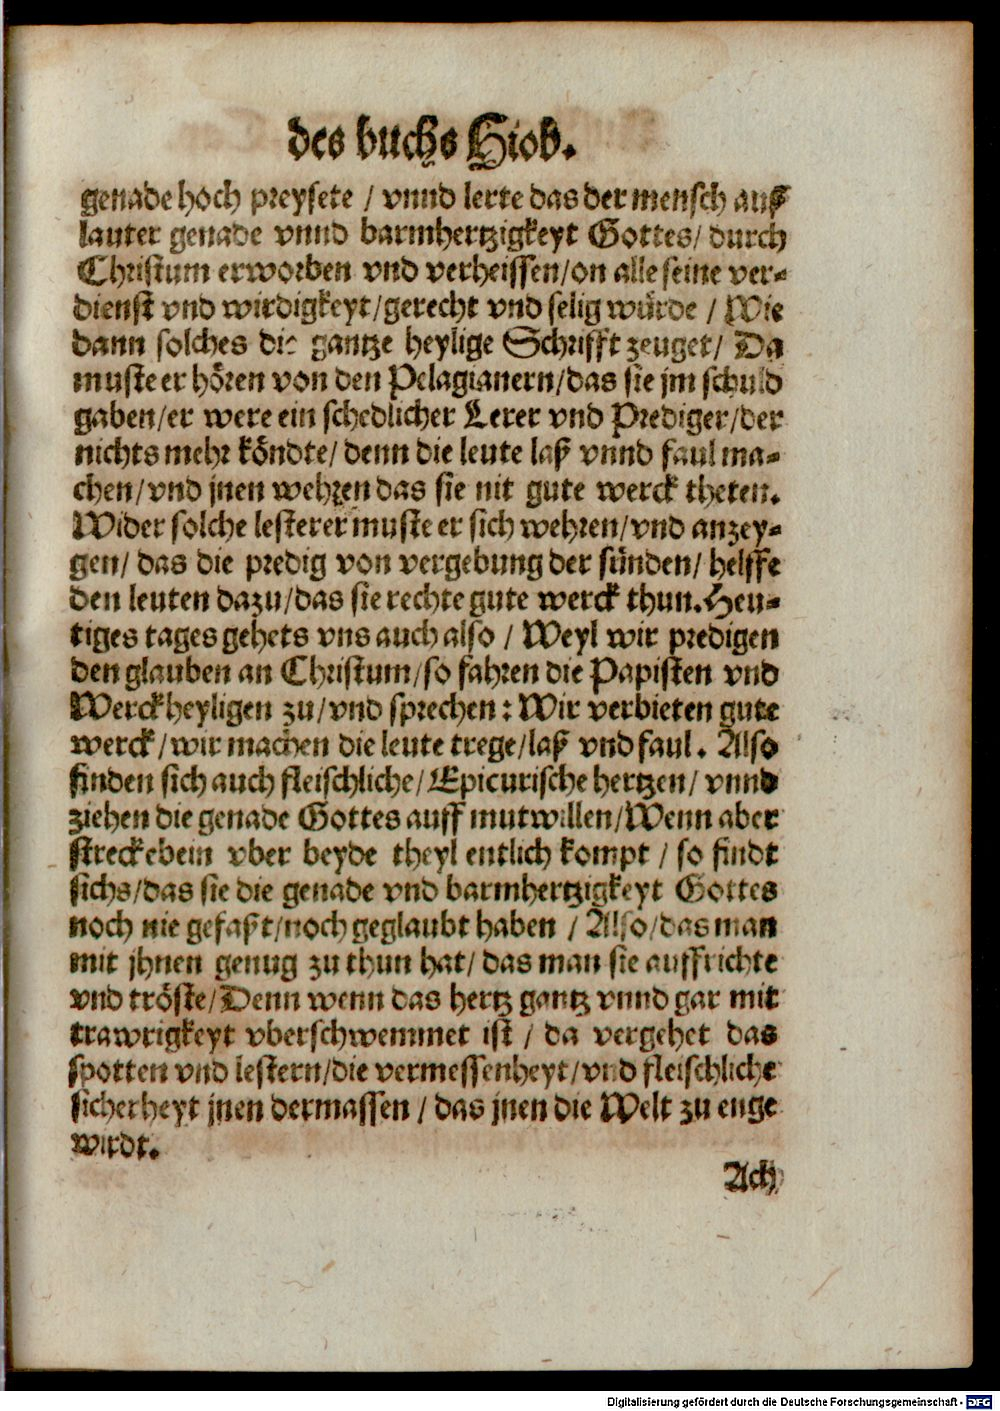 des buchs Hiob.
genade hoch preysete / vnnd lerte das der mensch auß
lauter genade vnnd barmhertzigkeyt Gottes/ durch
Christum erworben vnd verheissen/on alle seine ver-
dienst vnd wirdigkeyt/gerecht vnd selig würde / Wie
dann solches die gantze heylige Schrifft zeuget/ Da
muste er hören von den Pelagianern/das sie jm schuld
gaben/er were ein schedlicher Lerer vnd Prediger/der
nichts mehr köndte/ denn die leute laß vnnd faul ma-
chen/vnd jnen wehren das sie nit gute werck theten.
Wider solche lesterer muste er sich wehren/vnd anzey-
gen/ das die predig von vergebung der sünden/ helffe
den leuten dazu/das sie rechte gute werck thun.Heu-
tiges tages gehets vns auch also / Weyl wir predigen
den glauben an Christum/so fahren die Papisten vnd
Werckheyligen zu/vnd sprechen: Wir verbieten gute
werck/wir machen die leute trege/laß vnd faul. Also
finden sich auch fleischliche/Epicurische hertzen/ vnnd
ziehen die genade Gottes auff mutwillen/Wenn aber
streckebein vber beyde theyl entlich kompt / so findt
sichs/das sie die genade vnd barmhertzigkeyt Gottes
noch nie gefaßt/noch geglaubt haben / Also/das man
mit jhnen genug zu thun hat/ das man sie auffrichte
vnd tröste/Denn wenn das hertz gantz vnnd gar mit
trawrigkeyt vberschwemmet ist / da vergehet das
spotten vnd lestern/die vermessenheyt/vnd fleischliche
sicherheyt jnen dermassen / das jnen die Welt zu enge
wirdt.
Ach
Digitalisierung gefördert durch die Deutsche Forschungsgemeinschaft - DFG